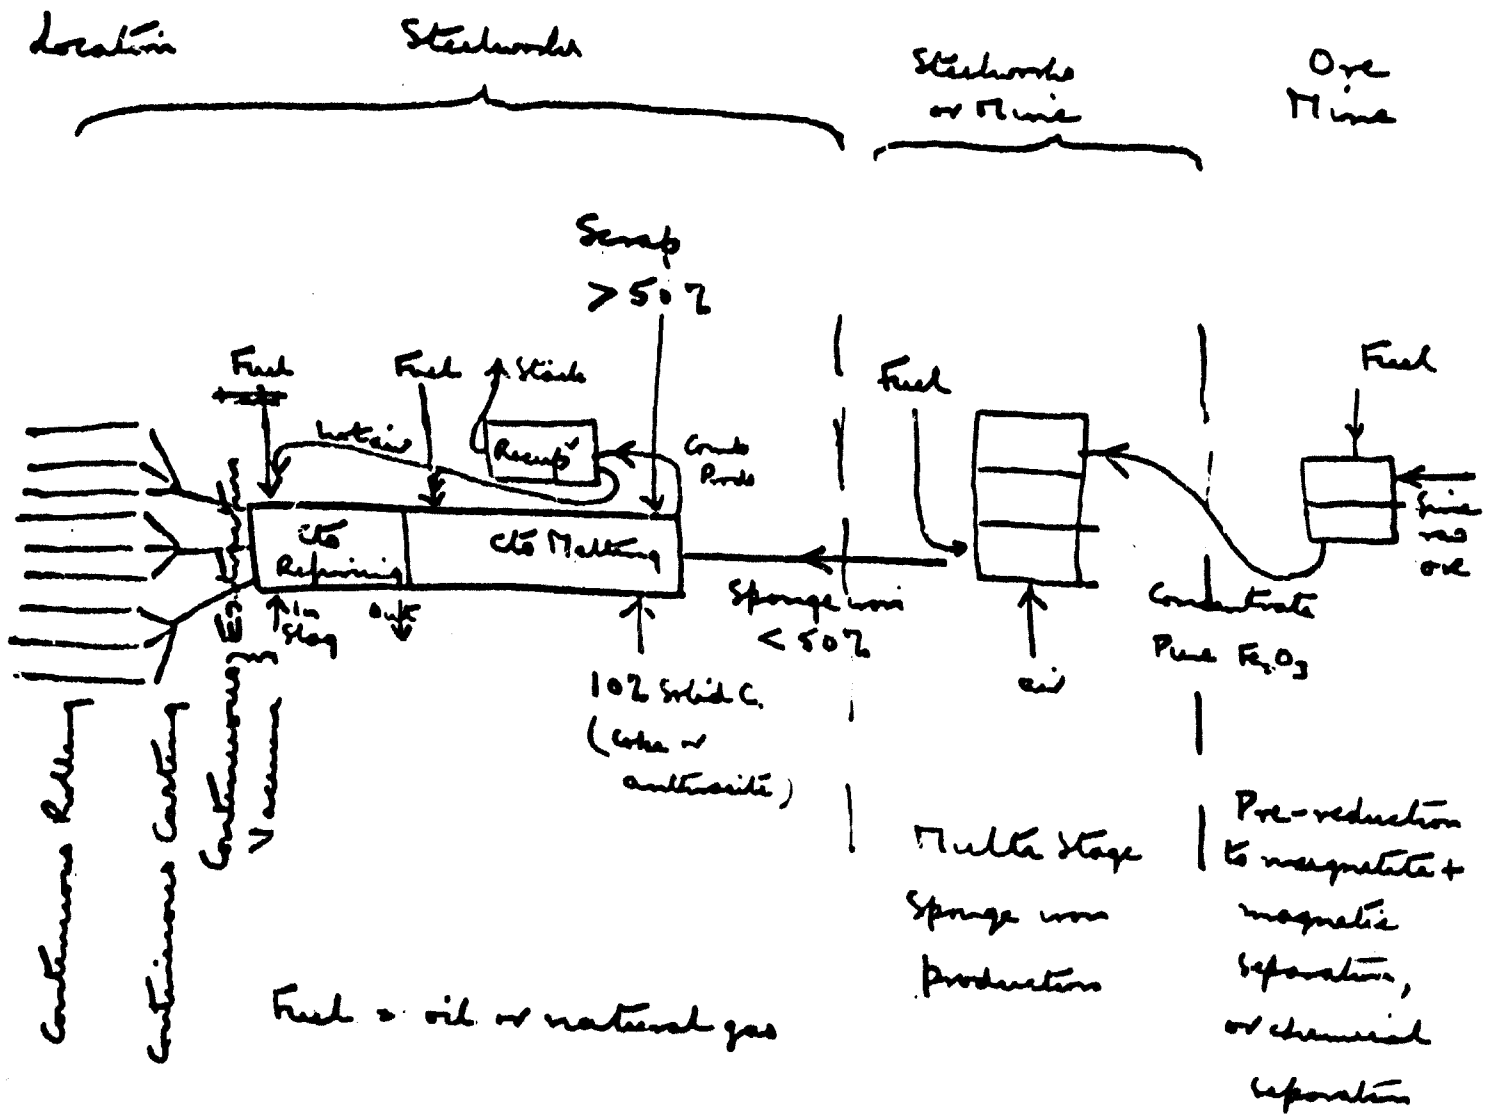 Location
Steelworks
Steelworks
or Mine
Ore
Mine
Scrap
> 50%
Fuel
Fuel
Stack
Fuel
Fuel
hot air
Recup
Comb
Prods
fine
raw
ore
cts
Refining
cts Melting
In
Slag
Out
Sponge iron
< 50%
Concentrate
Pure Fe2O3
air
10% Solid C.
(coke or
anthracite)
Continuous Rolling
Continuous Casting
Continuous
Vacuum
Multi Stage
Sponge iron
production
Pre-reduction
to magnetite +
magnetic
separation,
or chemical
separation
Fuel = oil or natural gas